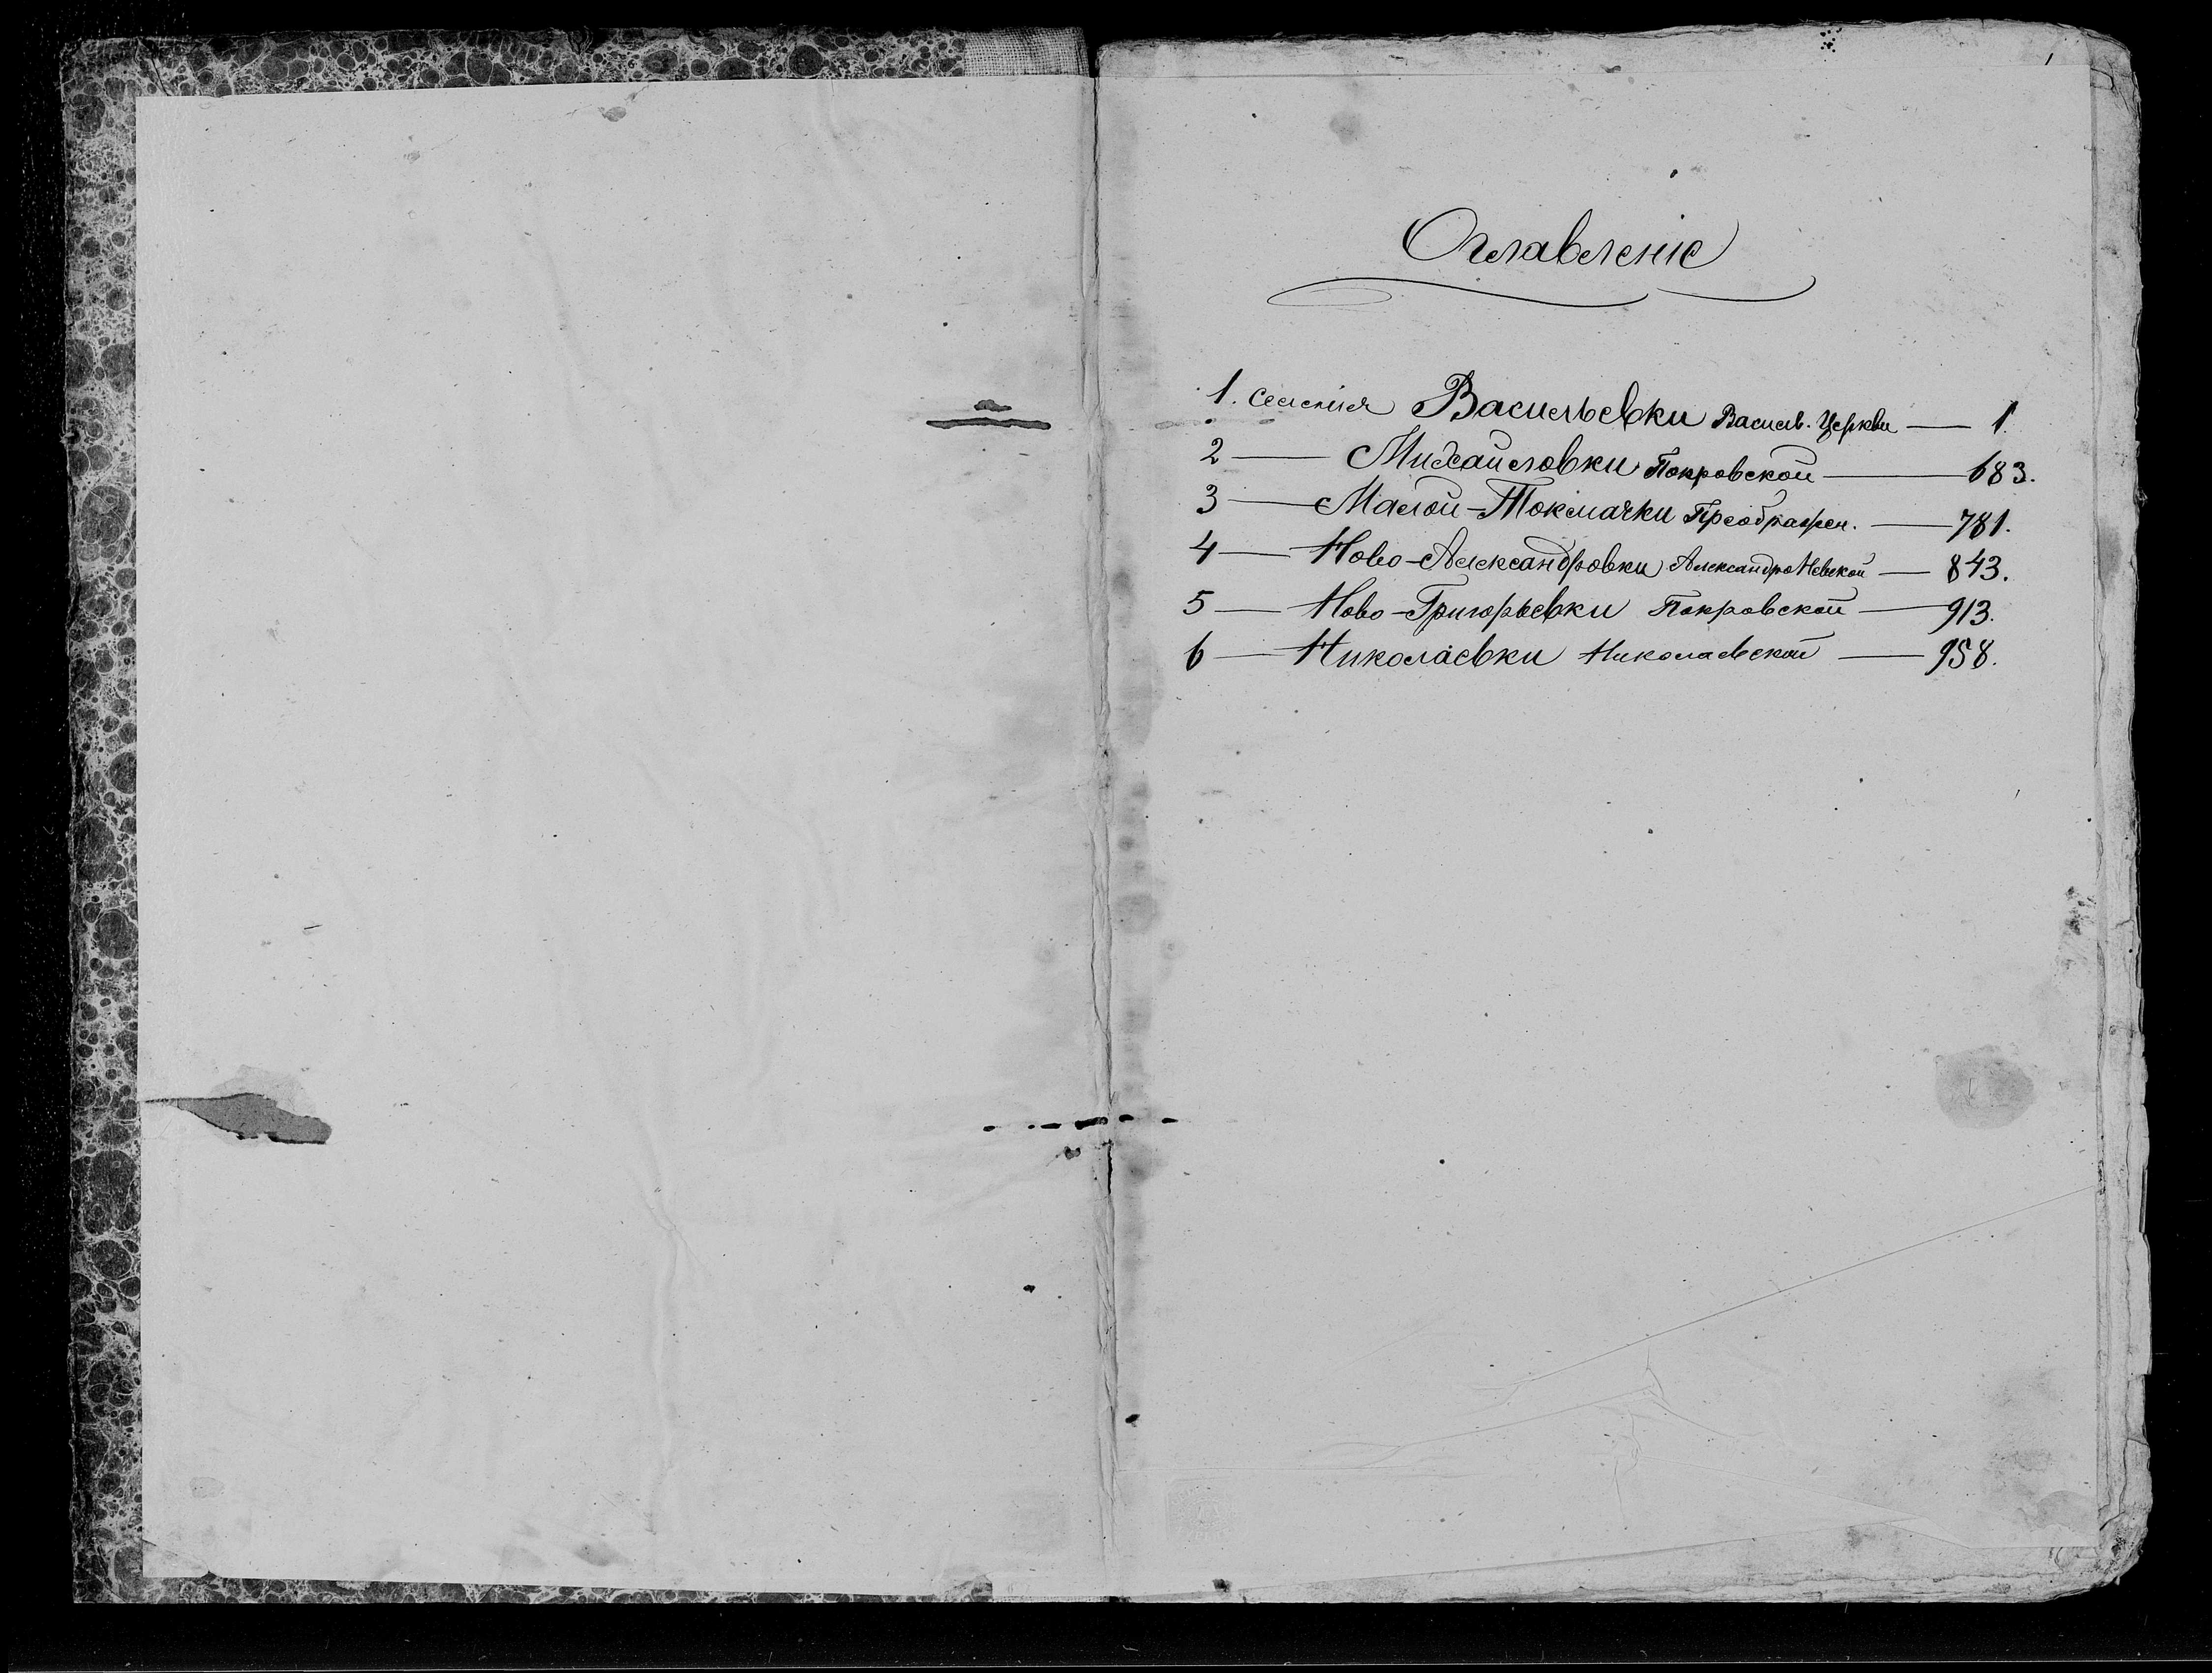 1
Оглавленіе
1. селенія Васильевки Васил. Церкви — 1.
2 — Михайловки Покровской — 683.
3 — Малой-Токмачки Преображен. — 781.
4 — Ново-Александровки АлександроНевской — 843.
5 — Ново-Григорьевки Покровской — 913.
6 — Николаевки Николаевской — 958.